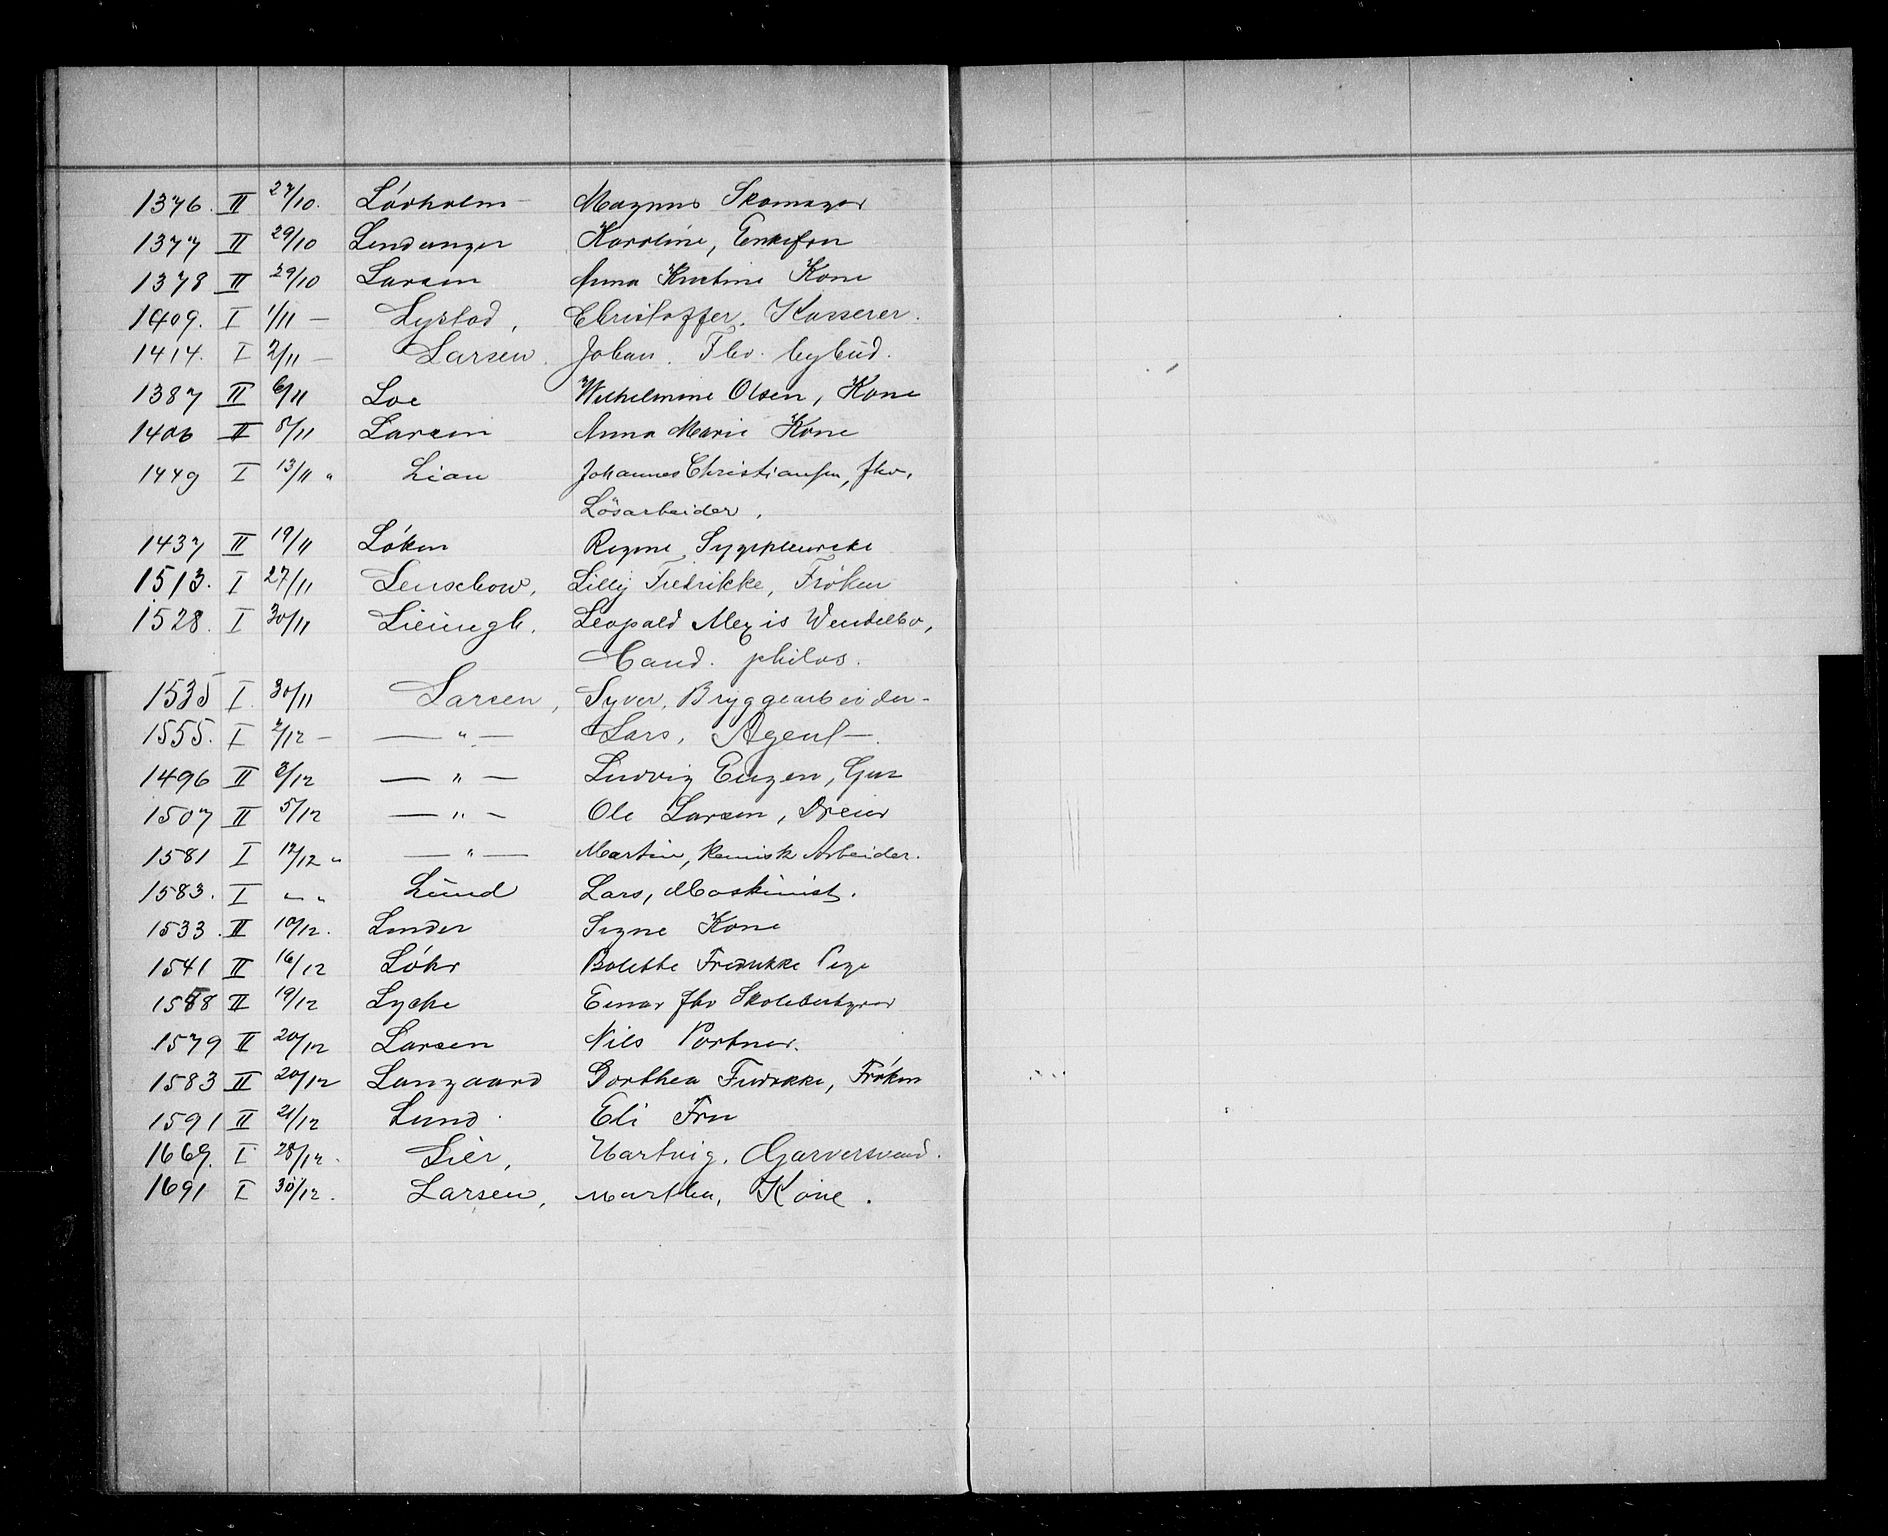 1376. II 27/10. Lövholm Magnus Skomager
1377 II 29/10 Karoline, Enkefru
1378 II 29/10 Larsen Anna Kristine Kone
1409. I 1/11 — Lystad, Christoffer, Kasserer.
1414. I 2/11 — Larsen. Johan. Fhv. bybud.
1387 II 6/11 Loe Wilhelmine Olsen, Kone
1406 II 8/11 Larsen Anna Marie Kone
1449 I 13/11 " Lian Johannes Christiansen, fhv.
Lösarbeider.
1437 II 19/11 Løken Regine, Sygepleierske
1513. I 27/11 Lenschow, Lilly Fredrikke, Frøken
1528. I 30/11 Leopold Alexis Wendelbo,
Cand. philos.
1535 I. 30/11 Larsen, Syver, Bryggearbeider-
1555. I 2/12 — — " — Lars, Agent —.
1496 II 3/12 — " — Ludvig Eugen, Gut
1507 II 5/12 — " — Ole Larsen, Dreier
1581 I 12/12 " — " — Martin, kemisk Arbeider.
1583. I " " Lund Lars, Maskinist.
1533. II 10/12. Linder Signe Kone
1541 II 16/12 Løhr Bolette Fredrikke Pige
1558 II 19/12 Lyche Einar fhv Skolebestyrer
1579 II 20/12 Larsen Nils Portner.
1583 II 20/12 Langaard Dorthea Fredrikke, Frøken
1591 II 21/12 Lund. Eli Fru
1669. I 28/12. Lier, Hartvig. Garversvend.
1691 I 30/12. Larsen, Martha, Kone.